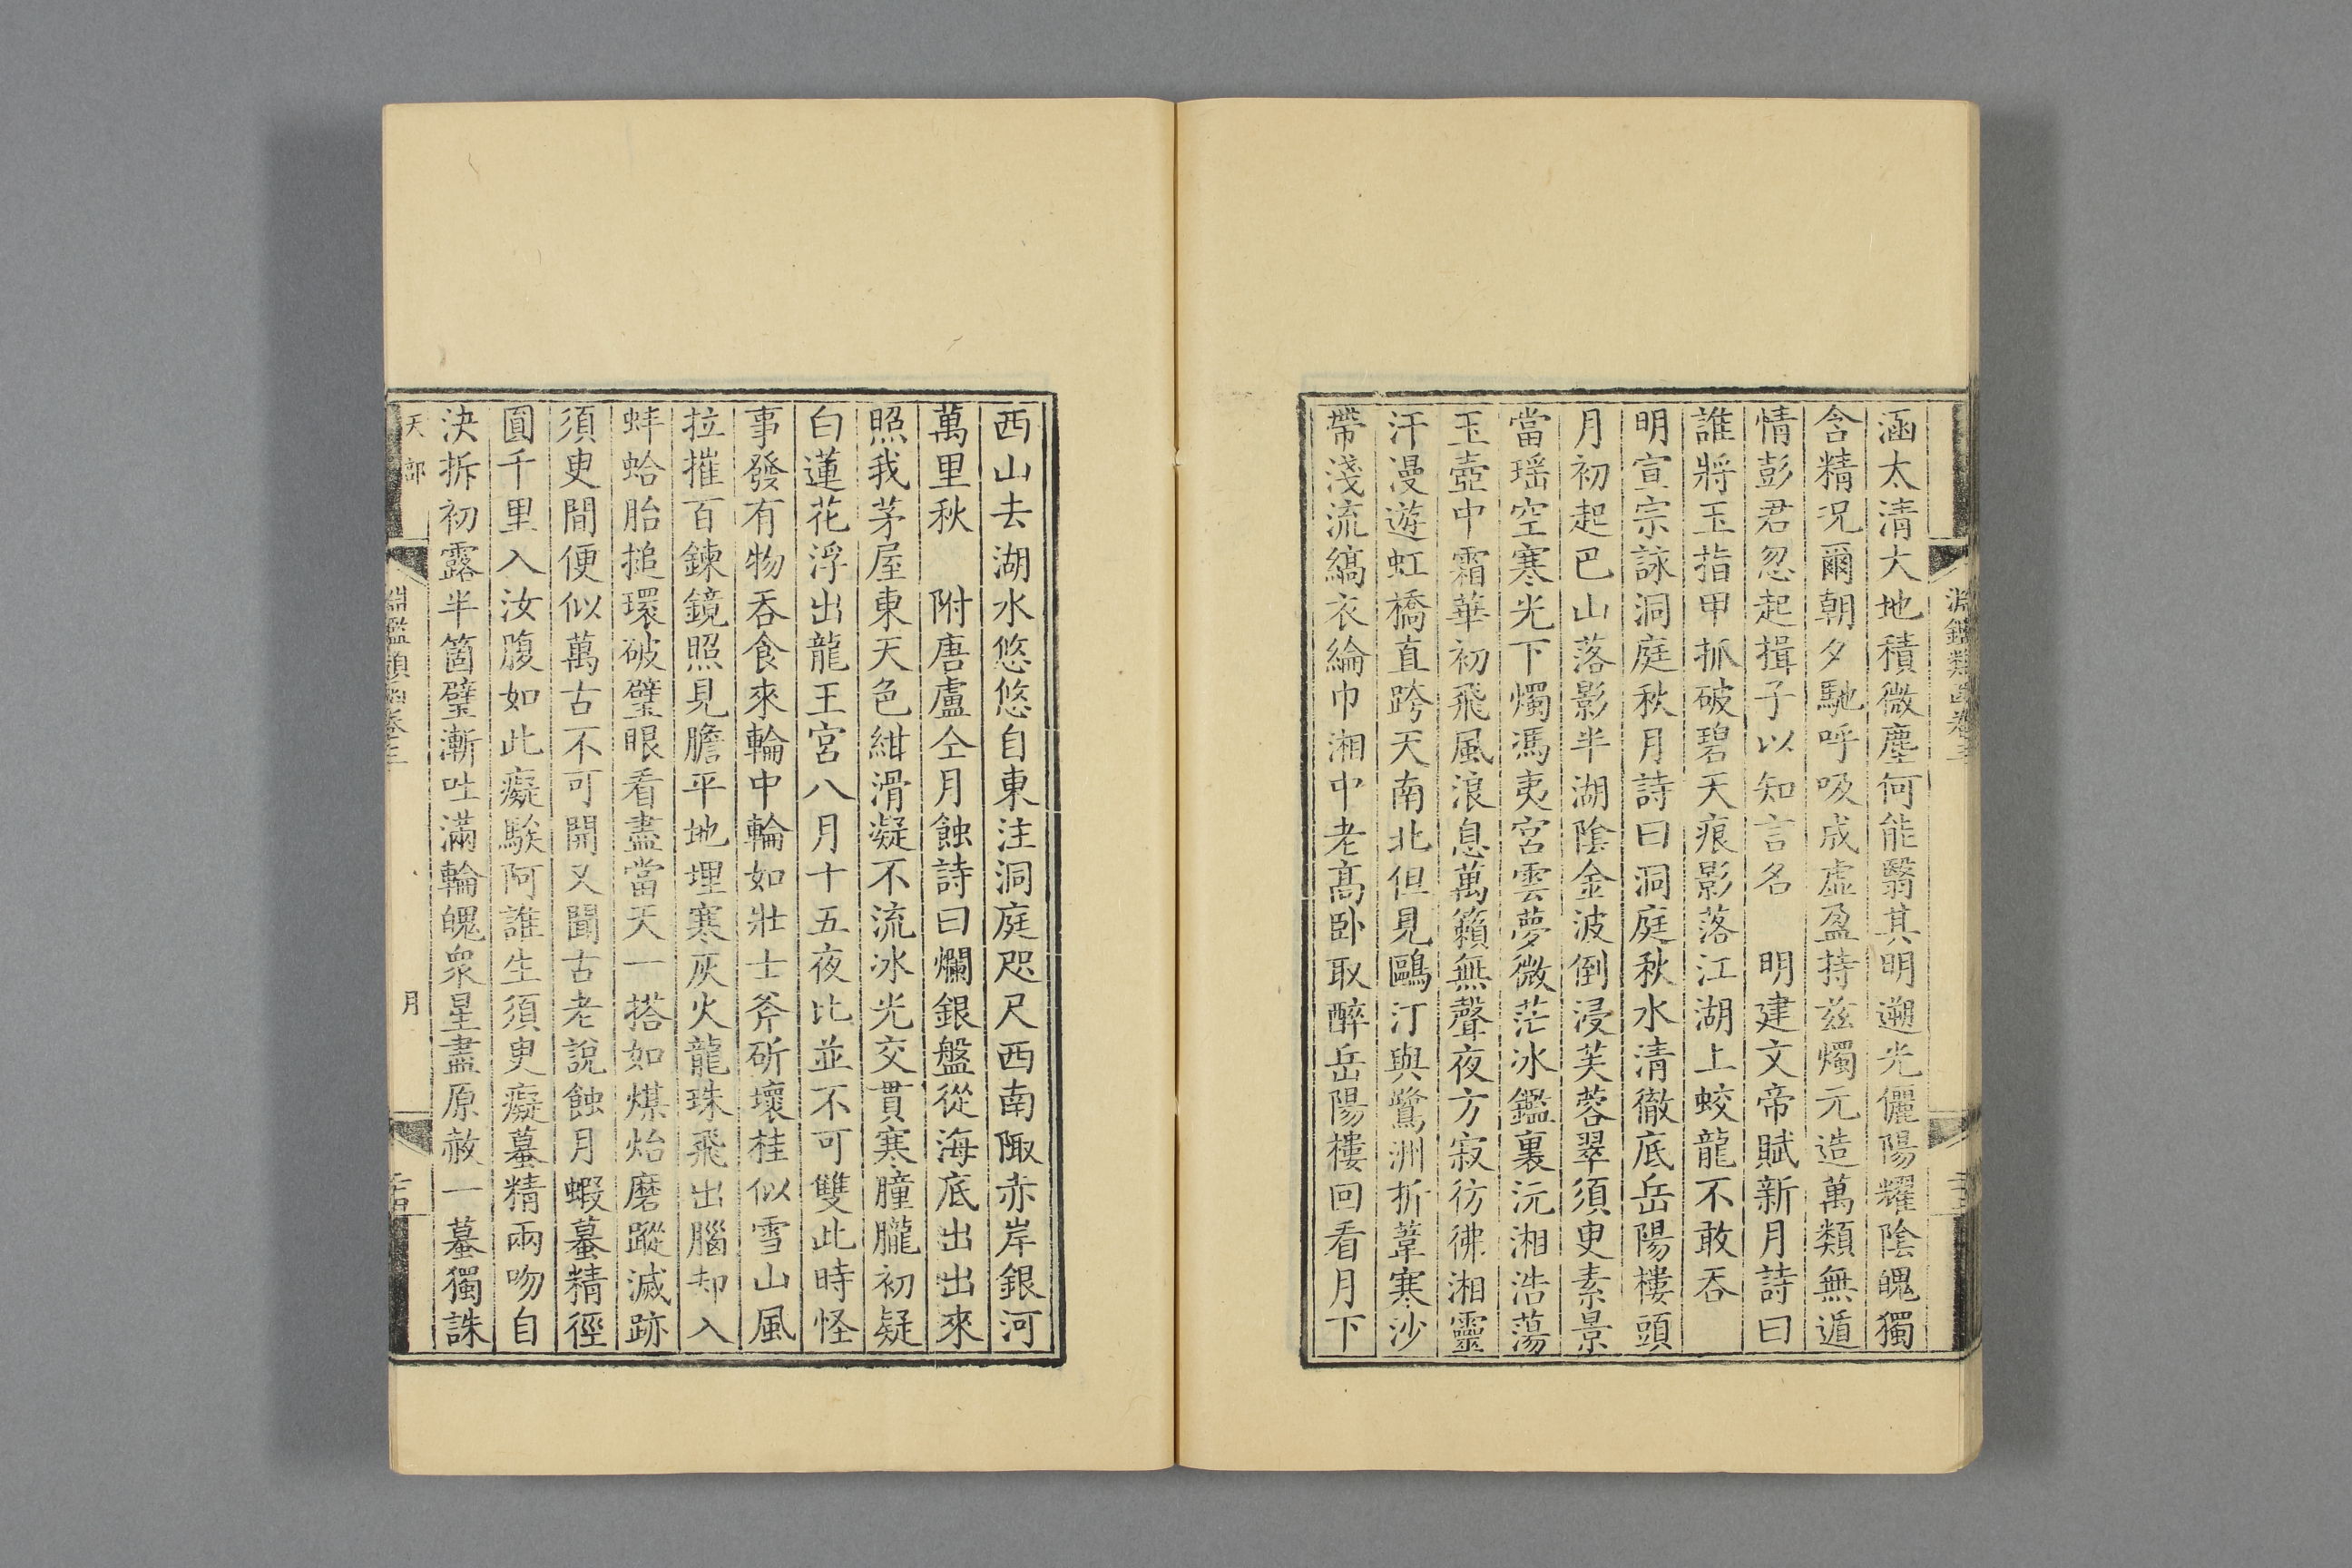 淵鑑類函卷三
涵太清大地積微塵何能翳其明遡光儷陽耀陰魄獨
含精况爾朝夕馳呼吸成虛盈持兹燭元造萬類無遁
情彭君忽起揖子以知言名　明建文帝賦新月詩曰
誰將玉指甲抓破碧天痕影落江湖上蛟龍不敢吞
明宣宗詠洞庭秋月詩曰洞庭秋水清徹底岳陽樓頭
月初起巴山落影半湖陰金波倒浸芙蓉翠須臾素景
當瑶空寒光下燭馮夷宮雲夢微茫冰鑑裏沅湘浩蕩
玉壺中霜華初飛風浪息萬籟無聲夜方寂彷彿湘靈
汗漫遊虹橋直跨天南北但見鷗汀與鷺洲折葦寒沙
帶淺流縞衣綸巾湘中老高卧取醉岳陽樓回看月下
西山去湖水悠悠自東注洞庭咫尺西南陬赤岸銀河
萬里秋　附唐盧仝月蝕詩曰爛銀盤從海底出出來
照我茅屋東天色紺滑凝不流冰光交貫寒朣朧初疑
白蓮花浮出龍王宮八月十五夜比並不可雙此時怪
事發有物吞食來輪中輪如壯士斧斫壞桂似雪山風
拉摧百鍊鏡照見膽平地埋寒灰火龍珠飛出腦却入
蚌蛤胎搥環破璧眼看盡當天一搭如煤炲磨蹤滅跡
須臾間便似萬古不可開又聞古老說蝕月蝦蟇精徑
圓千里入汝腹如此癡騃阿誰生須臾癡蟇精兩吻自
決拆初露半箇璧漸吐滿輪魄衆星盡原赦一蟇獨誅
天部
淵鑑類函卷三
月
二十四